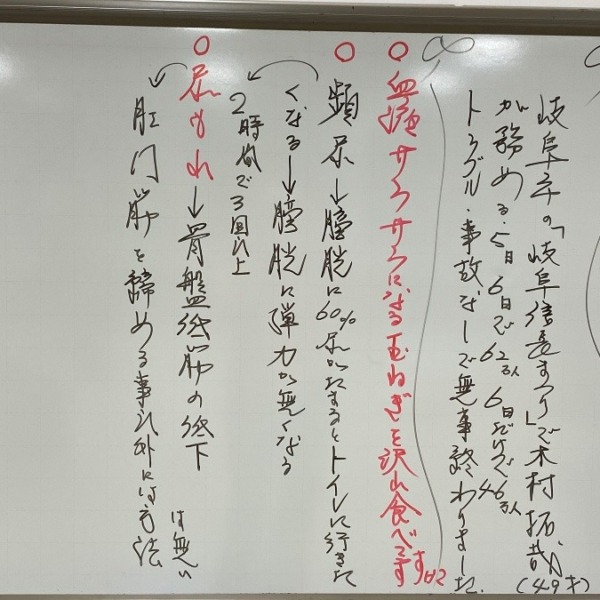 岐阜市の「岐阜信長まつり」で木村拓哉(49才)
が務める。5日 6日で62万人 6日だけで46万人
トラブル・事故なしで無事終わりました。
○血糖サラサラになる玉ねぎを沢山食べてます
○頻尿→膀胱に60%尿がたまるとトイレに行きた
くなる→膀胱に弾力が無くなる
2時間で3回以上
○尿もれ→骨盤底筋の低下
肛門筋を締める事以外には方法
は無い